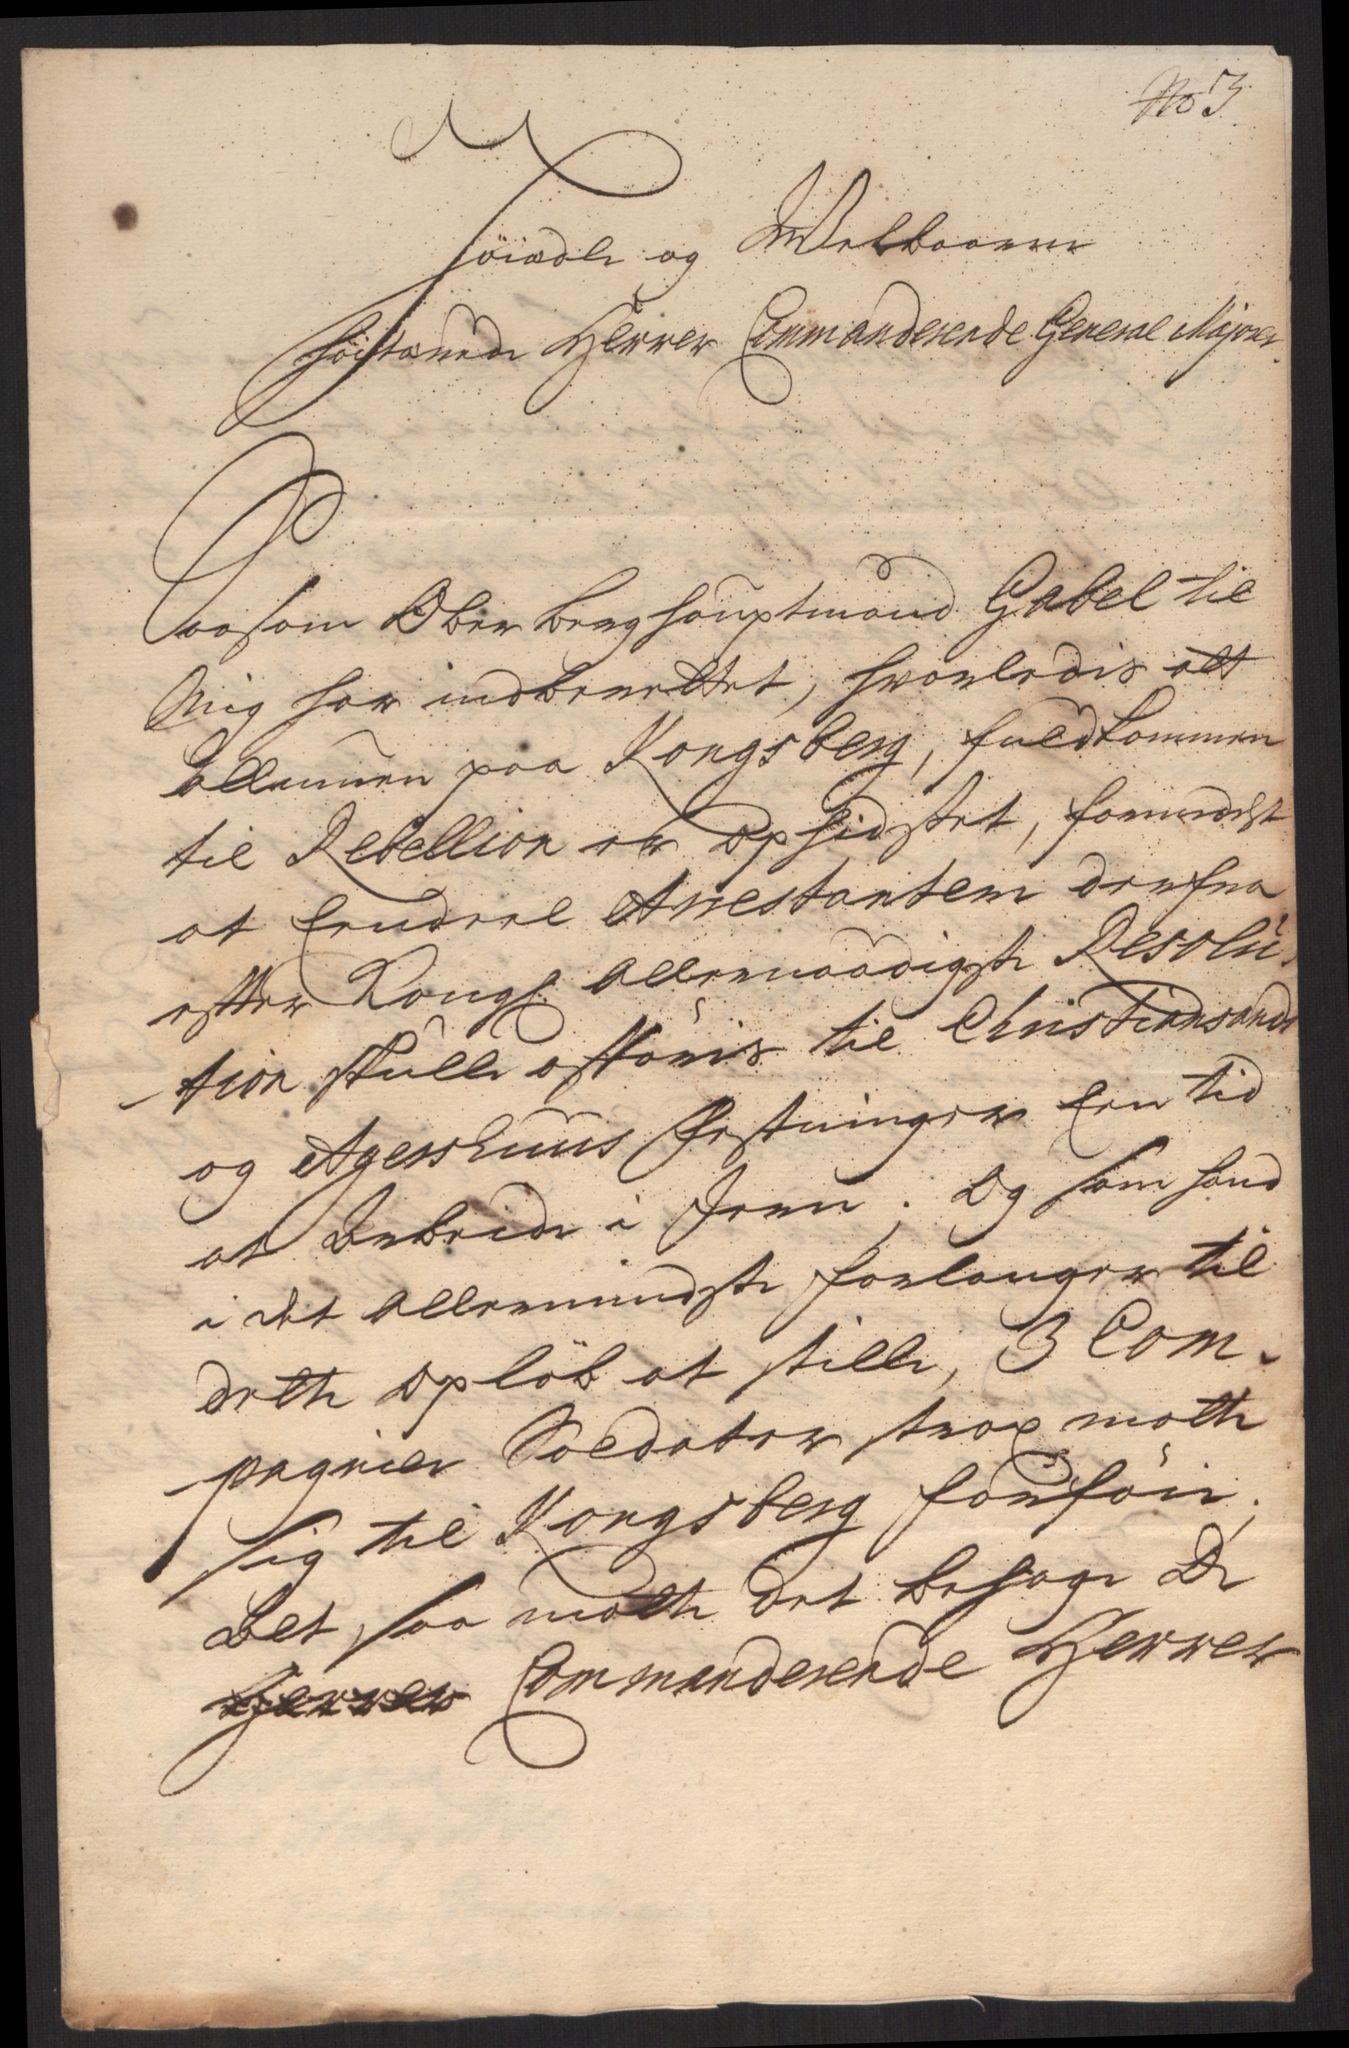 No 3
Höiædle og Welbaarne
Höistærede Herrer Commanderende General Majorer.
Saasom Ober berg hauptmand Gabel til
Mig har indberettet, hvorledis alt
Allmuen paa Kongsberg, fuldkommen
til Rebellion er Ophidset, formedelst
at Arrestanterne derfra
efter Kongl. allernaadigste Resolu-
tion skulle afföris til Christiansands
og Agershuus Fæstninger Een tid
at Arbeide i Jern; Og som hand
i det allermindste forlanger til
dette Oplöb at stille, 3 Com-
pagnier Soldater strax motte
sig til Kongsberg forföie;
Det, saa motte det behage De
Herrer Commanderende Herrer